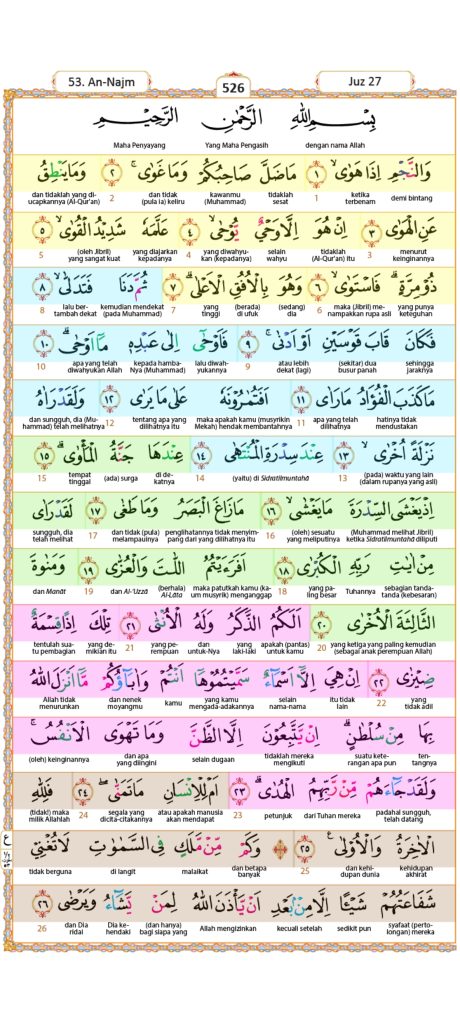 53. An-Najm
526
Juz 27
بِسْمِ اللهِ الرَّحْمٰنِ الرَّحِيْمِ
dengan nama Allah Yang Maha Pengasih Maha Penyayang
وَالنَّجْمِ اِذَا هَوٰىۙ ١ مَا ضَلَّ صَاحِبُكُمْ وَمَا غَوٰىۚ ٢ وَمَا يَنْطِقُ
demi bintang ketika terbenam 1 tidaklah sesat kawanmu (Muhammad) dan tidak (pula ia) keliru 2 dan tidaklah yang di-ucapkannya (Al-Qur'an)
عَنِ الْهَوٰى ٣ اِنْ هُوَ اِلَّا وَحْيٌ يُّوْحٰىۙ ٤ عَلَّمَهٗ شَدِيْدُ الْقُوٰىۙ ٥
menurut keinginannya 3 tidaklah (Al-Qur'an) itu selain wahyu yang diwahyu-kan (kepadanya) 4 yang diajarkan kepadanya (oleh Jibril) yang sangat kuat 5
ذُوْ مِرَّةٍۗ فَاسْتَوٰىۙ ٦ وَهُوَ بِالْاُفُقِ الْاَعْلٰىۗ ٧ ثُمَّ دَنَا فَتَدَلّٰىۙ ٨
yang punya keteguhan maka (Jibril) me-nampakkan rupa asli 6 (sedang) dia (berada) di ufuk yang tinggi 7 kemudian mendekat (pada Muhammad) lalu ber-tambah dekat 8
فَكَانَ قَابَ قَوْسَيْنِ اَوْ اَدْنٰىۚ ٩ فَاَوْحٰٓى اِلٰى عَبْدِهٖ مَآ اَوْحٰىۗ ١٠
sehingga jaraknya (sekitar) dua busur panah atau lebih dekat (lagi) 9 lalu diwah-yukannya kepada hamba-Nya (Muhammad) apa yang telah diwahyukan Allah 10
مَا كَذَبَ الْفُؤَادُ مَا رَاٰى ١١ اَفَتُمٰرُوْنَهٗ عَلٰى مَا يَرٰى ١٢ وَلَقَدْ رَاٰهُ
hatinya tidak mendustakan apa yang telah dilihatnya 11 maka apakah kamu (musyrikin Mekah) hendak membantahnya tentang apa yang dilihatnya itu 12 dan sungguh, dia (Mu-hammad) telah melihatnya
نَزْلَةً اُخْرٰىۙ ١٣ عِنْدَ سِدْرَةِ الْمُنْتَهٰى ١٤ عِنْدَهَا جَنَّةُ الْمَأْوٰىۗ ١٥
(pada) waktu yang lain (dalam rupanya yang asli) 13 (yaitu) di Sidratilmuntaha 14 di de-katnya (ada) surga tempat tinggal 15
اِذْ يَغْشَى السِّدْرَةَ مَا يَغْشٰىۙ ١٦ مَا زَاغَ الْبَصَرُ وَمَا طَغٰى ١٧ لَقَدْ رَاٰى
(Muhammad melihat Jibril) ketika Sidratilmuntaha diliputi (oleh) sesuatu yang meliputinya 16 penglihatannya tidak menyim-pang dari yang dilihatnya itu dan tidak (pula) melampauinya 17 sungguh, dia telah melihat
مِنْ اٰيٰتِ رَبِّهِ الْكُبْرٰى ١٨ اَفَرَءَيْتُمُ اللّٰتَ وَالْعُزّٰى ١٩ وَمَنٰوةَ
sebagian tanda-tanda (kebesaran) Tuhannya yang pa-ling besar 18 maka patutkah kamu (ka-um musyrik) menganggap (berhala) Al-Lāta dan Al-'Uzzā 19 dan Manāt
الثَّالِثَةَ الْاُخْرٰى ٢٠ اَلَكُمُ الذَّكَرُ وَلَهُ الْاُنْثٰى ٢١ تِلْكَ اِذًا قِسْمَةٌ
yang ketiga yang paling kemudian (sebagai anak perempuan Allah) 20 apakah (pantas) untuk kamu yang laki-laki dan untuk-Nya yang pe-rempuan 21 yang de-mikian itu tentulah sua-tu pembagian
ضِيْزٰى ٢٢ اِنْ هِيَ اِلَّآ اَسْمَاۤءٌ سَمَّيْتُمُوْهَآ اَنْتُمْ وَاٰبَاۤؤُكُمْ مَّآ اَنْزَلَ اللهُ
yang tidak adil 22 itu tidak lain selain nama-nama yang kamu mengada-adakannya kamu dan nenek moyangmu Allah tidak menurunkan
بِهَا مِنْ سُلْطٰنٍۗ اِنْ يَّتَّبِعُوْنَ اِلَّا الظَّنَّ وَمَا تَهْوَى الْاَنْفُسُۚ
ten-tangnya suatu kete-rangan apa pun tidaklah mereka mengikuti selain dugaan dan apa yang diingini (oleh) keinginannya
وَلَقَدْ جَاۤءَهُمْ مِّنْ رَّبِّهِمُ الْهُدٰىۗ ٢٣ اَمْ لِلْاِنْسَانِ مَا تَمَنّٰىۖ ٢٤ فَلِلّٰهِ
padahal sungguh, telah datang dari Tuhan mereka petunjuk 23 atau apakah manusia akan mendapat segala yang dicita-citakannya 24 (tidak!) maka milik Allahlah
الْاٰخِرَةُ وَالْاُوْلٰى ٢٥ وَكَمْ مِّنْ مَّلَكٍ فِى السَّمٰوٰتِ لَا تُغْنِيْ
kehidupan akhirat dan kehi-dupan dunia 25 dan betapa banyak malaikat di langit tidak berguna
شَفَاعَتُهُمْ شَيْـًٔا اِلَّا مِنْۢ بَعْدِ اَنْ يَّأْذَنَ اللهُ لِمَنْ يَّشَاۤءُ وَيَرْضٰى ٢٦
syafaat (perto-longan) mereka sedikit pun kecuali setelah Allah mengizinkan (dan hanya) bagi siapa yang Dia ke-hendaki dan Dia ridai 26
ع